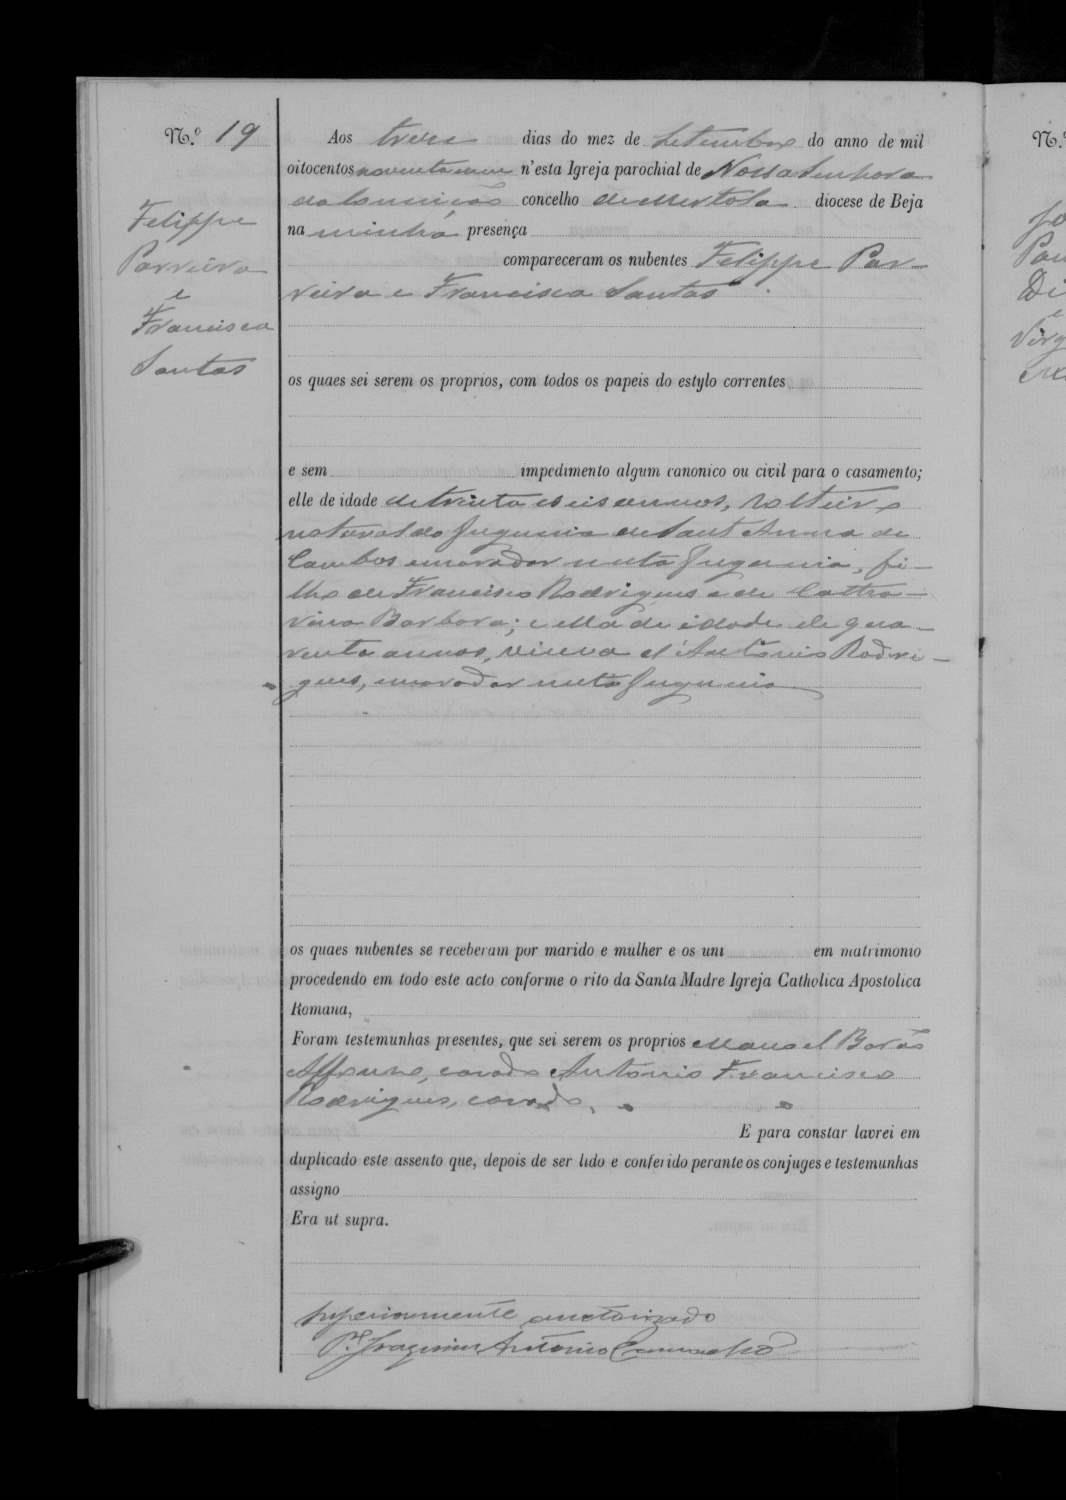 N.º 19
Felippe
Parreira
e
Francisca
Santas
Aos treze dias do mez de Setembro do anno de mil
oitocentos noventa e um n'esta Igreja parochial de Nossa Senhora
da Conceição concelho de Mertola diocese de Beja
na minha presença
compareceram os nubentes Felippe Par-
reira e Francisca Santas
os quaes sei serem os proprios, com todos os papeis do estylo correntes
e sem impedimento algum canonico ou civil para o casamento;
elle de idade de trinta e seis annos, solteiro
natural da freguesia de Sant Anna de
Cambas e morador nesta freguesia, fi-
lho de Francisco Rodrigues e de Catha-
rina Barbara; e ella de idade de qua-
renta annos, viuva d'António Rodri-
gues, morador nesta freguesia
os quaes nubentes se receberam por marido e mulher e os uni em matrimonio
procedendo em todo este acto conforme o rito da Santa Madre Igreja Catholica Apostolica
Romana,
Foram testemunhas presentes, que sei serem os proprios Manoel Barão
Affonso, casado António Francisco
Rodrigues, casado.
E para constar lavrei em
duplicado este assento que, depois de ser lido e conferido perante os conjuges e testemunhas
assigno
Era ut supra.
superiormente auctorisado
P.e Joaquim António
N.º